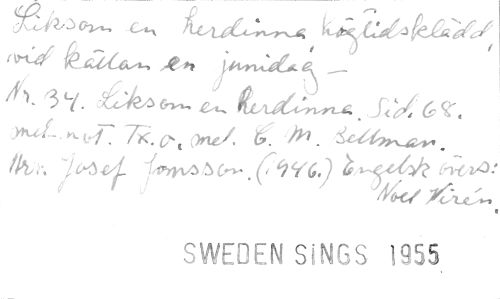 Liksom en herdinna högtidsklädd,
vid källan en junidag –
Nr. 34. Liksom en herdinna. Sid. 68.
mel-not. Tx. o. mel. C. M. Bellman.
Arr. Josef Jonsson. (1946.) Engelsk övers:
Noel Wirén.
SWEDEN SiNGS 1955